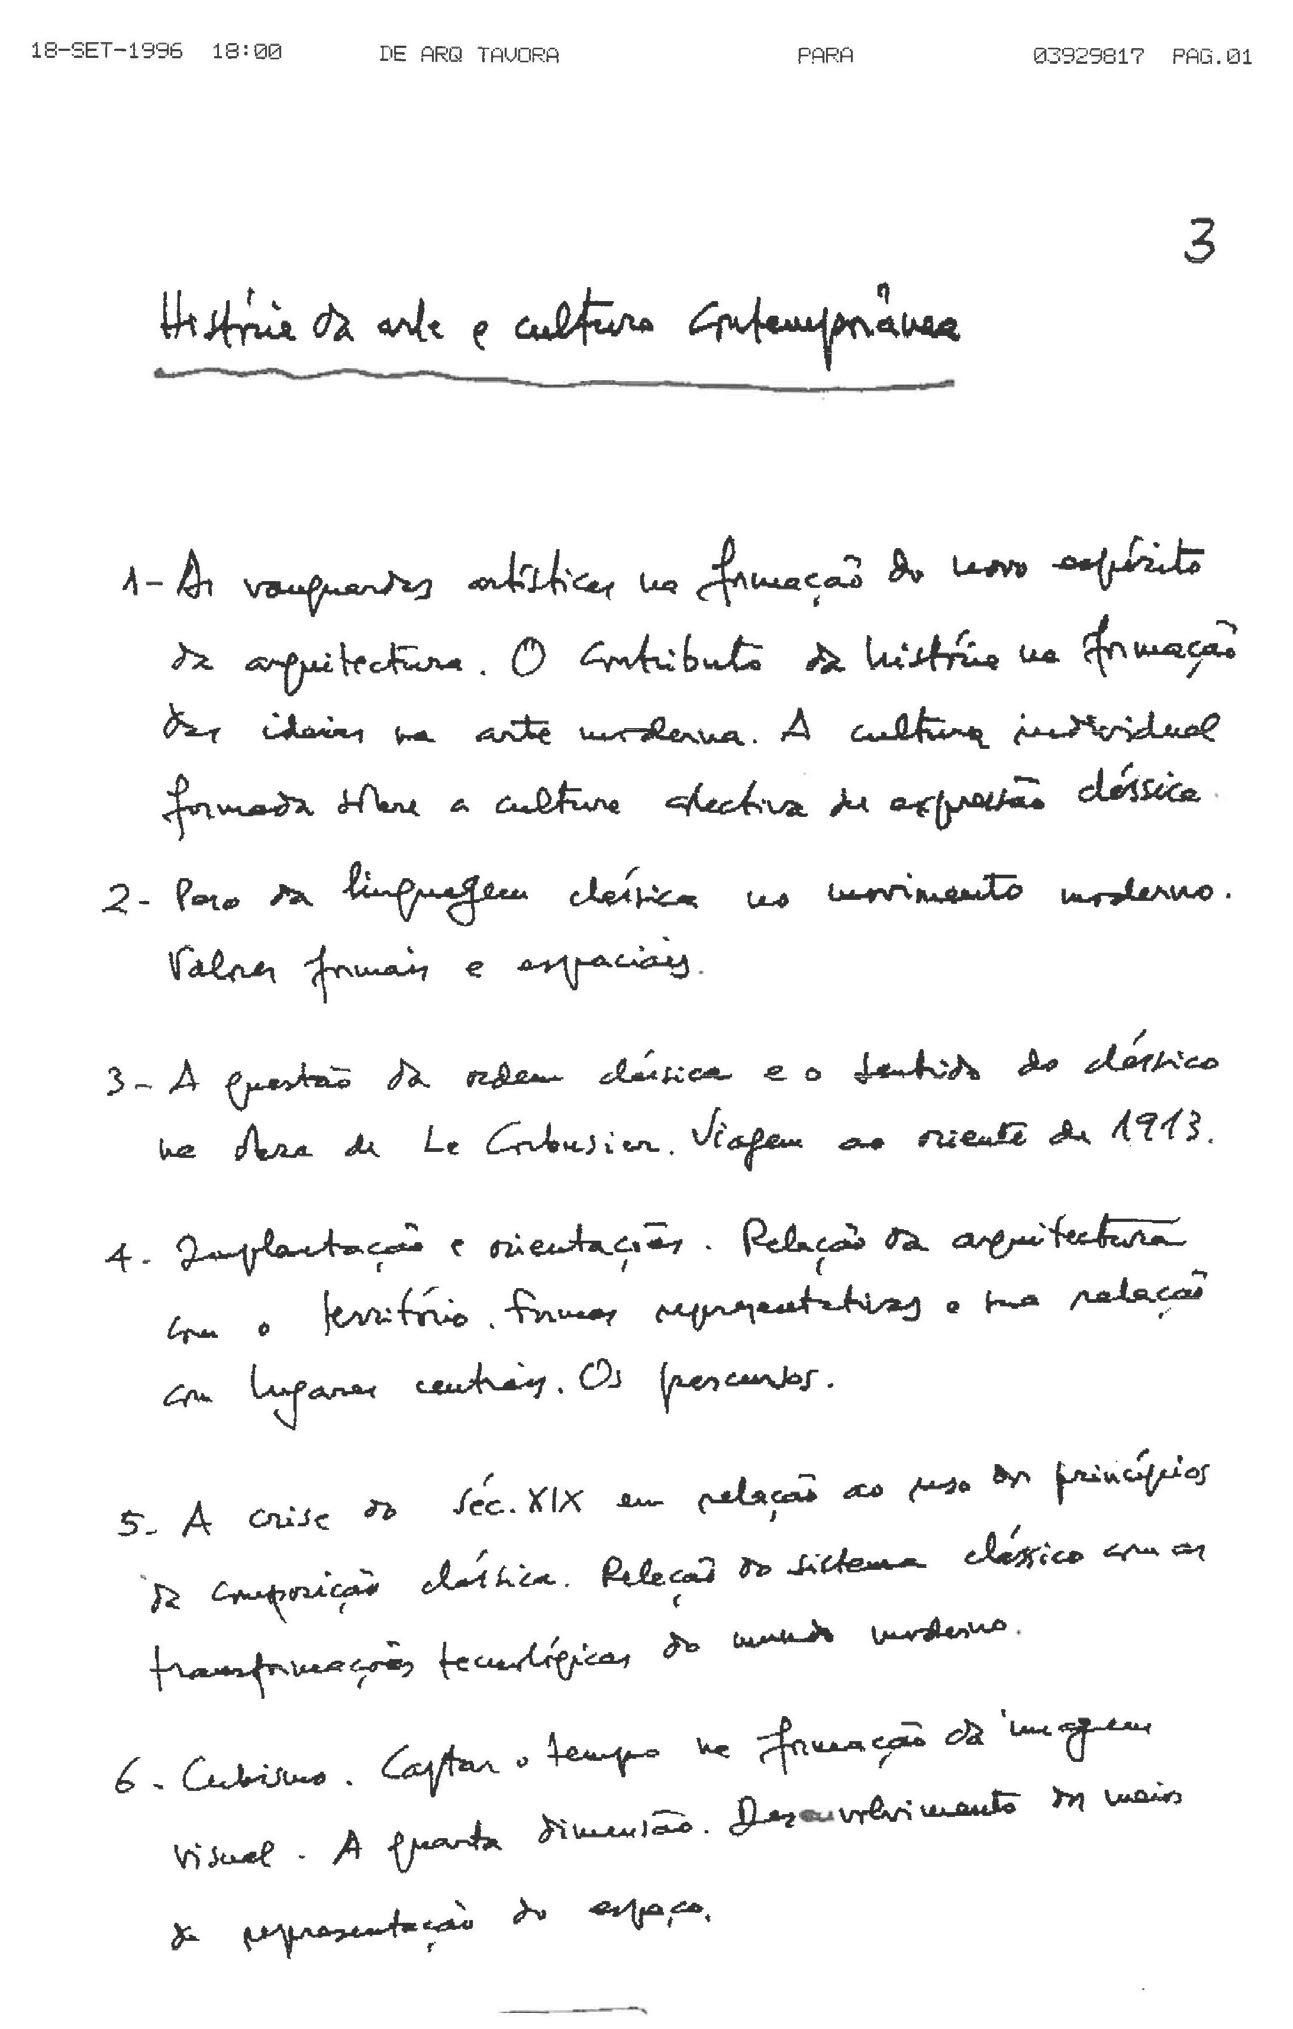 18-SET-1996 18:00 DE ARQ TAVORA PARA 03929817 PAG.01
3
História da arte e cultura contemporânea
1- As vanguardas artísticas na formação do novo espírito
da arquitectura. O contributo da história na formação
das ideias na arte moderna. A cultura individual
formada sobre a cultura colectiva de expressão clássica.
2- Peso da linguagem clássica no movimento moderno.
Valores formais e espaciais.
3- A questão da ordem clássica e o sentido do clássico
na obra de Le Corbusier. Viagem ao oriente de 1913.
4. Implantação e orientações. Relação da arquitectura
com o território. Formas representativas e sua relação
com lugares centrais. Os percursos.
5- A crise do séc. XIX em relação ao uso dos princípios
da composição clássica. Relação do sistema clássico com as
transformações tecnológicas do mundo moderno.
6- Cubismo. Captar o tempo na formação da imagem
visual. A quarta dimensão. Desenvolvimento dos meios
de representação do espaço.